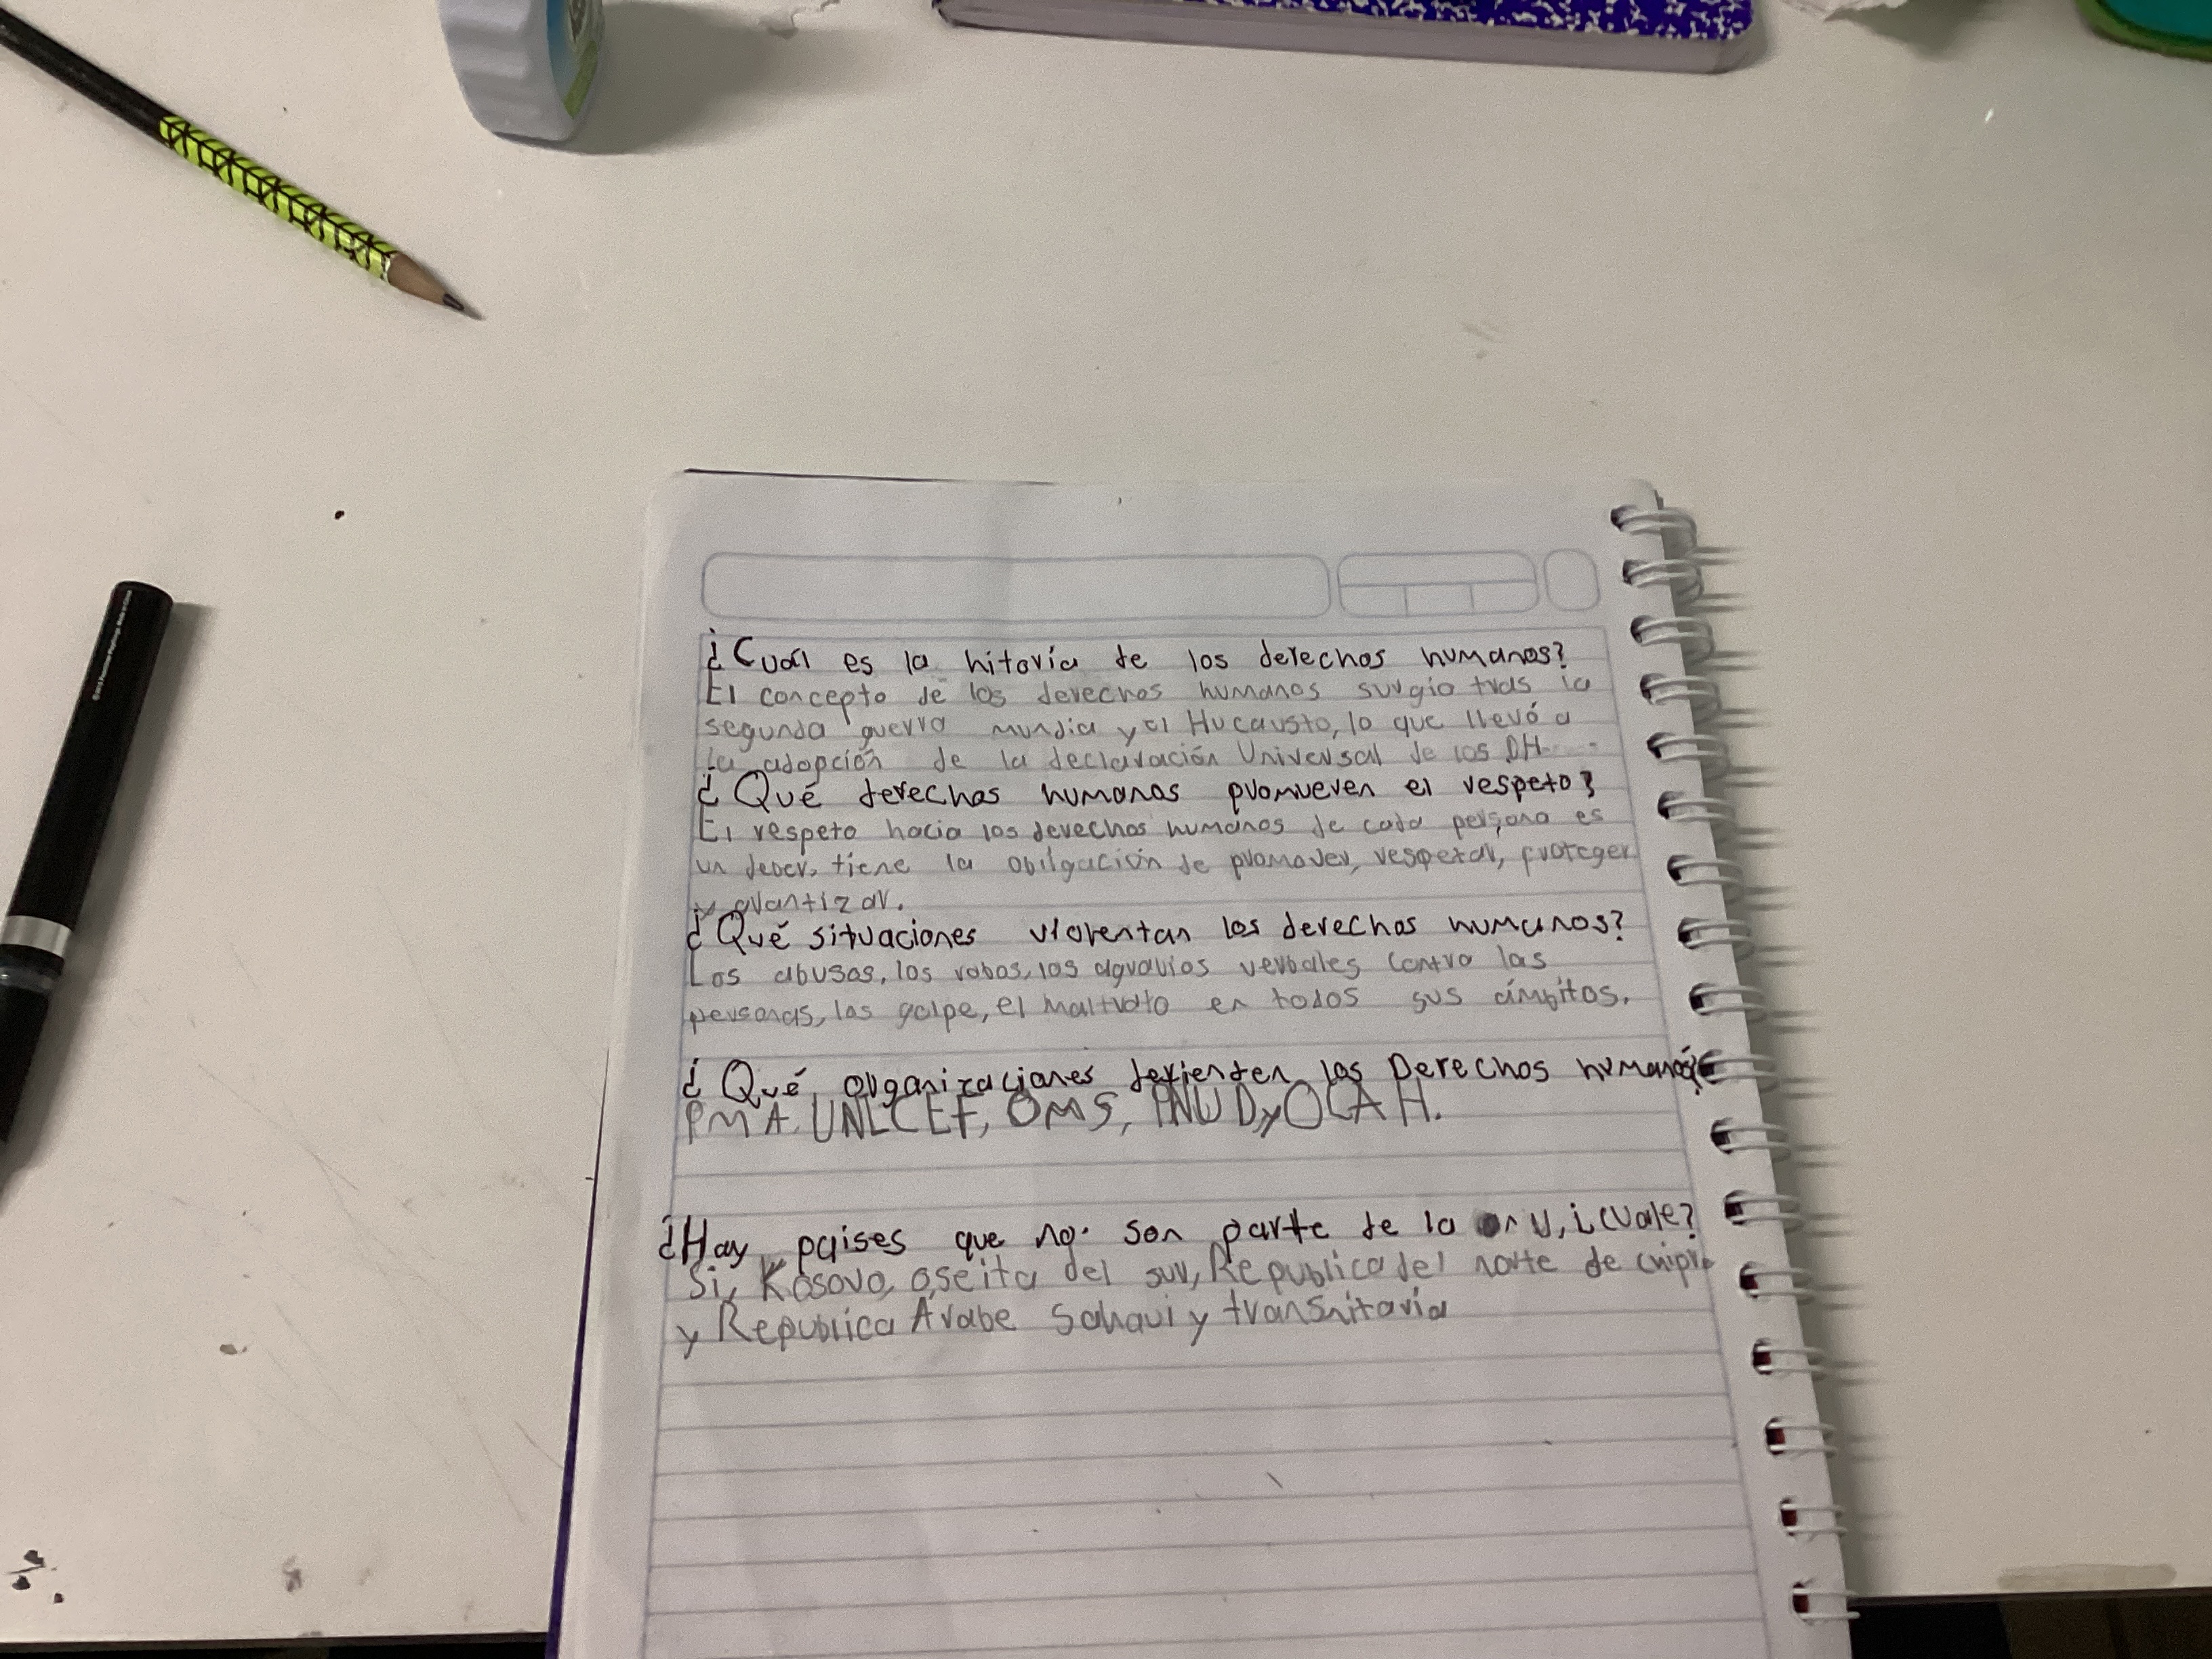 ¿Cuál es la hitoria de los derechos humanos?
El concepto de los derechos humanos surgio tras la
segunda guerra mundia y el Hucausto, lo que llevó a
la adopción de la declaración Universal de los DH
¿Qué derechos humanos promueven el respeto?
El respeto hacia los derechos humanos de cada persona es
un deber, tiene la obilgación de promover, respetar, proteger
y avantizar.
¿Qué situaciones violentan los derechos humanos?
Los abusos, los robos, los agravios verbales contra las
personas, los golpe, el maltrato en todos sus ámbitos.
¿Qué organizaciones defienden los Derechos humanos?
PMA, UNICEF, OMS, PNUD y OCAH.
¿Hay paises que no son parte de la onu, ¿cuale?
Si, Kosovo, oseita del sur, Republica del norte de chipre
y Republica Árabe Sahaui y transnitaria